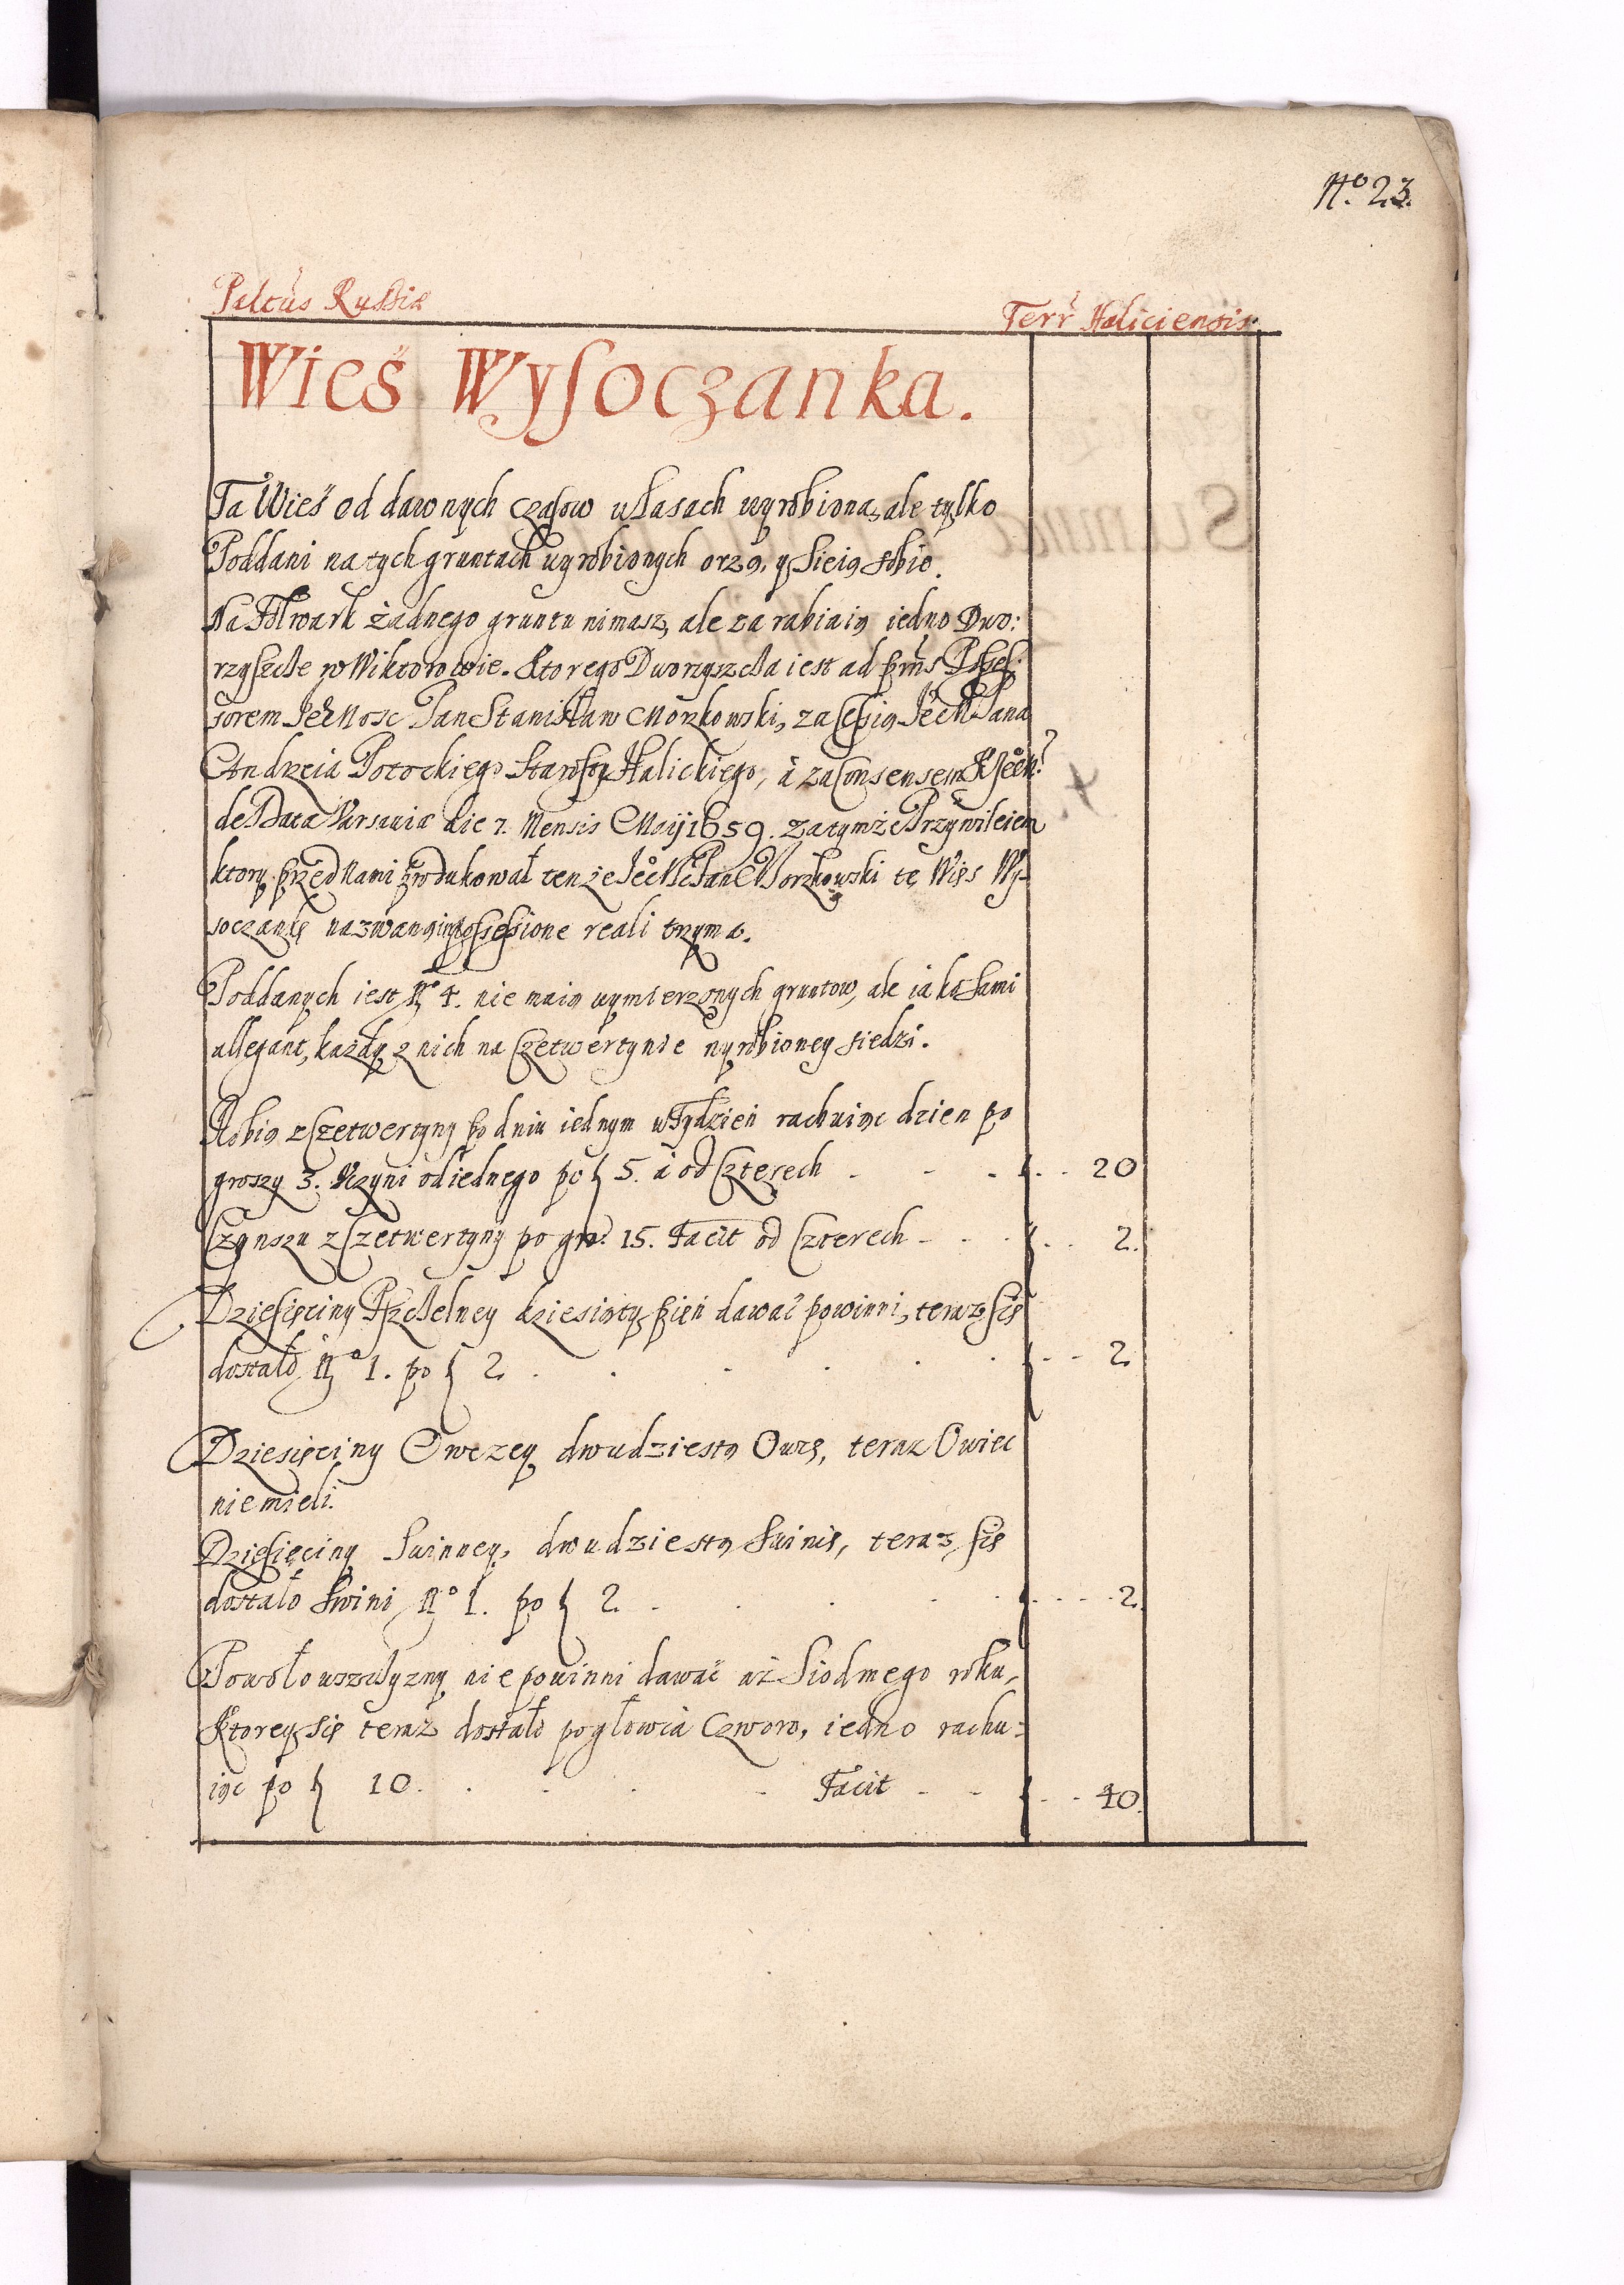 No. 23.
Paltus Russiæ
Terr Haliciensis.
Wieś Wysoczanka.
Ta Wieś od dawnych czasow w Lasach wyrobiona, ale tylko
Poddani na tych gruntach wyrobionych orzą, y sieią sobie.
Na Folwark żadnego gruntu nimasz, ale zarabiaią iedno Dwo:
rzyszcze w Wiktorowie. Ktorego Dworzyszcza iest ad Pmns Possef:
sorem Je Mosc Pan Stanisław Morzkowski, za Cessią Je M Pana
Andrzeia Potockiego Starosty Halickiego, à za Consensem
de Data Varsaviæ die 7. Mensis Maij 1659. za tymże Przywileiem
ktory przed Nami produkował tenże Je Mc Pan Morzkowski tę Wies Wy-
soczankę nazwaną in possessione reali trzyma.
Poddanych iest No 4. nie maią wymierzonych gruntow, ale iako sami
allegant, każdy z nich na Czetwertynie wyrobioney siedzi.
Robią z Czetwertyny po dniu iednym w Tydzień rachuiąc dzien po
groszy 3. Uczyni od iednego po f 5. à od Czterech - - - f. - - 20
Czynszu z Czetwertyny po gr. 15. Facit od Czterech - - - f. - - 2.
Dziesięciny Pszczelney dziesiąty pień dawać powinni, teraz się
dostało No 1. po f 2. . . . . . . f - - - 2
Dziesięciny Owczey dwudziestą Owcę, teraz Owiec
nie mieli.
Dziesięciny Swinney, dwudziestą Swinię, teraz się
dostało Swini No 1. po f 2. - . . . . f. - - - 2.
Powołowszczyzny nie powinni dawać aż Siodmego roku,
Ktorey się teraz dostało pogłowia Czworo, iedno rachu:
iąc po f 10. . . . - Facit - - f. - - 40.